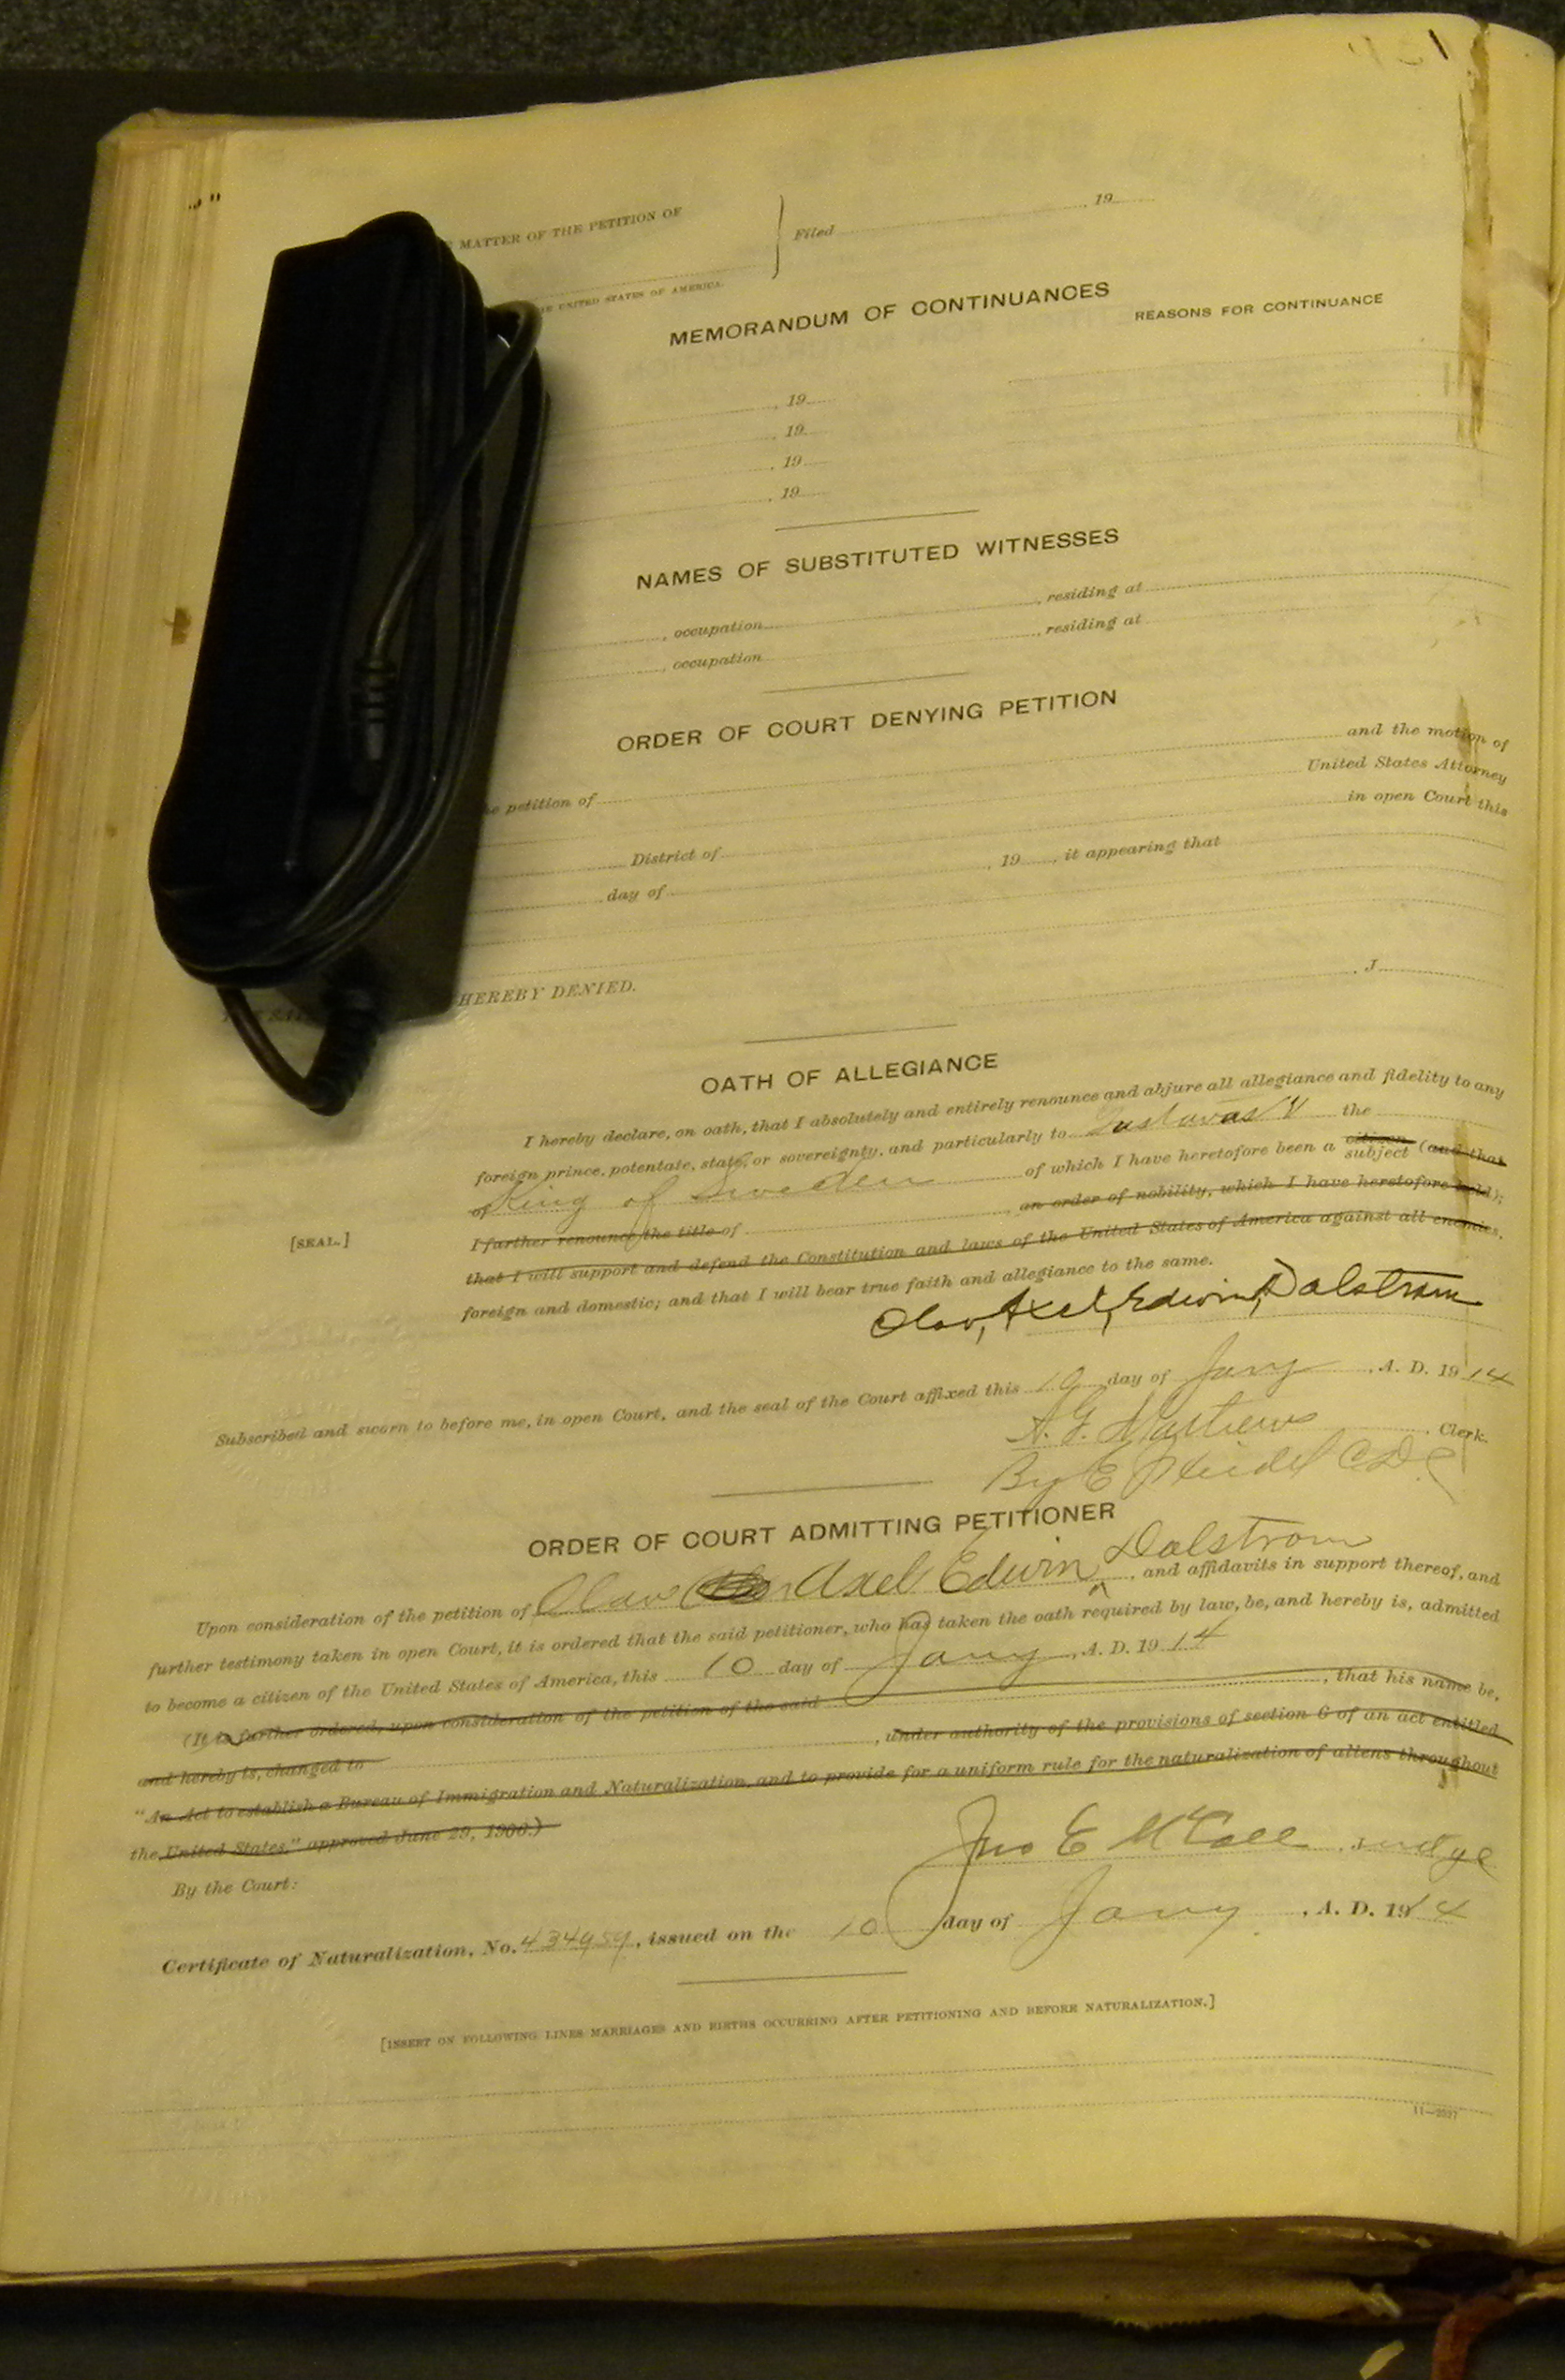 MATTER OF THE PETITION OF
Filed , 19
THE UNITED STATES OF AMERICA.
MEMORANDUM OF CONTINUANCES
REASONS FOR CONTINUANCE
, 19
, 19
, 19
, 19
NAMES OF SUBSTITUTED WITNESSES
, occupation , residing at
, occupation , residing at
ORDER OF COURT DENYING PETITION
the petition of and the motion of
United States Attorney
District of in open Court this
day of , 19 , it appearing that
HEREBY DENIED.
, J
OATH OF ALLEGIANCE
I hereby declare, on oath, that I absolutely and entirely renounce and abjure all allegiance and fidelity to any
foreign prince, potentate, state, or sovereignty, and particularly to Gustavas V the
of King of Sweden of which I have heretofore been a citizen subject (and that
I further renounce the title of , an order of nobility, which I have heretofore held);
[SEAL.]
that I will support and defend the Constitution and laws of the United States of America against all enemies,
foreign and domestic; and that I will bear true faith and allegiance to the same.
Olav, Axel, Edwin, Dalstrom
Subscribed and sworn to before me, in open Court, and the seal of the Court affixed this 10 day of Jany , A. D. 1914
, Clerk.
By E
ORDER OF COURT ADMITTING PETITIONER
Dalstrom
Upon consideration of the petition of Olav Axel Edwin , and affidavits in support thereof, and
further testimony taken in open Court, it is ordered that the said petitioner, who has taken the oath required by law, be, and hereby is, admitted
to become a citizen of the United States of America, this 10 day of Jany , A. D. 1914
(It is further ordered, upon consideration of the petition of the said , that his name be,
and hereby is, changed to , under authority of the provisions of section 6 of an act entitled
"An Act to establish a Bureau of Immigration and Naturalization, and to provide for a uniform rule for the naturalization of aliens throughout
the United States," approved June 29, 1906.)
By the Court:
Jno E McCall , Judge
Certificate of Naturalization, No. 434959, issued on the 10 day of Jany , A. D. 1914
[INSERT ON FOLLOWING LINES MARRIAGES AND BIRTHS OCCURRING AFTER PETITIONING AND BEFORE NATURALIZATION.]
11—2527